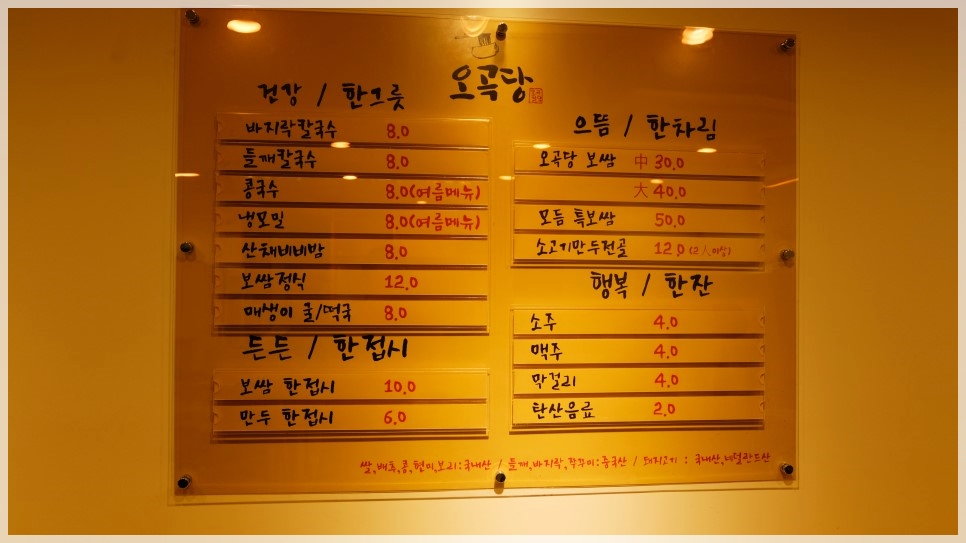 오곡당
건강 / 한그릇
바지락칼국수 8.0
들깨칼국수 8.0
콩국수 8.0(여름메뉴)
냉모밀 8.0(여름메뉴)
산채비비밥 8.0
보쌈정식 12.0
매생이 굴/떡국 8.0
든든 / 한접시
보쌈 한접시 10.0
만두 한접시 6.0
으뜸 / 한차림
오곡당 보쌈 中 30.0
大 40.0
모듬 특보쌈 50.0
소고기만두전골 12.0 (2人이상)
행복 / 한잔
소주 4.0
맥주 4.0
막걸리 4.0
탄산음료 2.0
쌀,배추,콩,현미,보리:국내산 / 들깨,바지락,쭈꾸미:중국산 / 돼지고기 : 국내산,네덜란드산